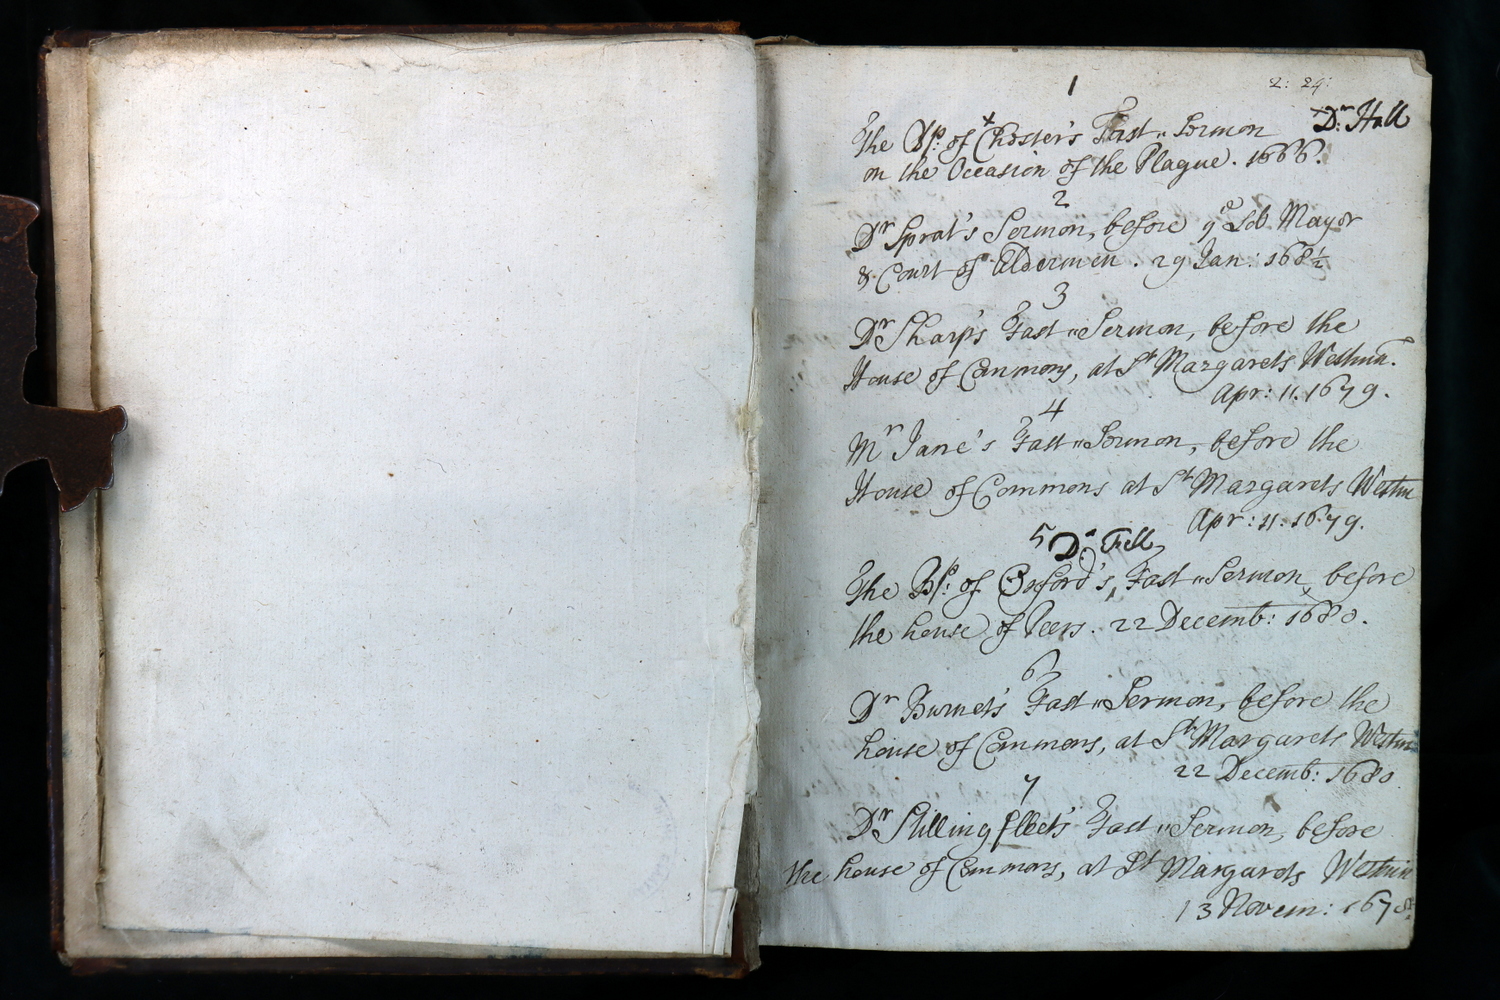 1
2: 24:
Dr. Hall
The Bp: of Chester's Fast-Sermon
on the Occasion of the Plague. 1666.
2
Dr Sprat's Sermon, before ye Lod Mayor
& Court of Aldermen. 29 Jan: 168½
3
Dr Sharp's Fast-Sermon, before the
House of Commons, at St Margarets Westmr.
Apr: 11. 1679.
4
Mr Jane's Fast-Sermon, before the
House of Commons at St Margarets Westm
Apr: 11. 1679.
5 Dr. Fell
The Bp: of Oxford's, Fast-Sermon, before
the house of Peers. 22 Decemb: 1680.
6
Dr Burnet's Fast-Sermon, before the
house of Commons, at St Margarets Westm
22 Decemb: 1680.
7
Dr Stillingfleets' Fast-Sermon, before
the house of Commons, at St Margarets Westmin
13 Novem: 1678.